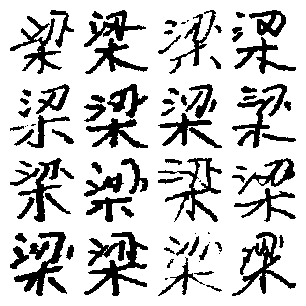 梁梁梁梁
梁梁梁梁
梁梁梁梁
梁梁梁梁